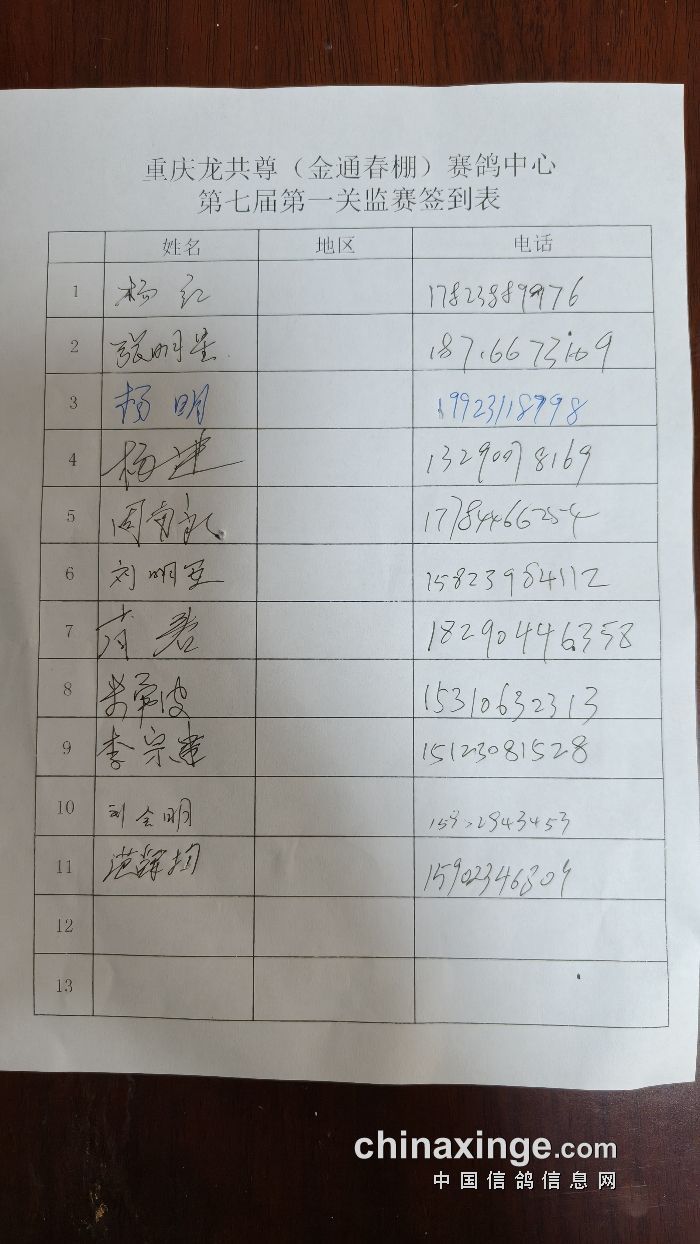 重庆龙共尊（金通春棚）赛鸽中心
第七届第一关监赛签到表
姓名 地区 电话
1 杨红 17823889976
2 张明星
3 杨明 19923118998
4 杨建 13290078169
5 周有 17784466254
6 刘明亚 15823984112
7 肖君 18290446358
8 15310632313
9 李宗建 15123081528
10 刘会明
11 范辉均 15902346309
12
13
chinaxinge.com
中国信鸽信息网